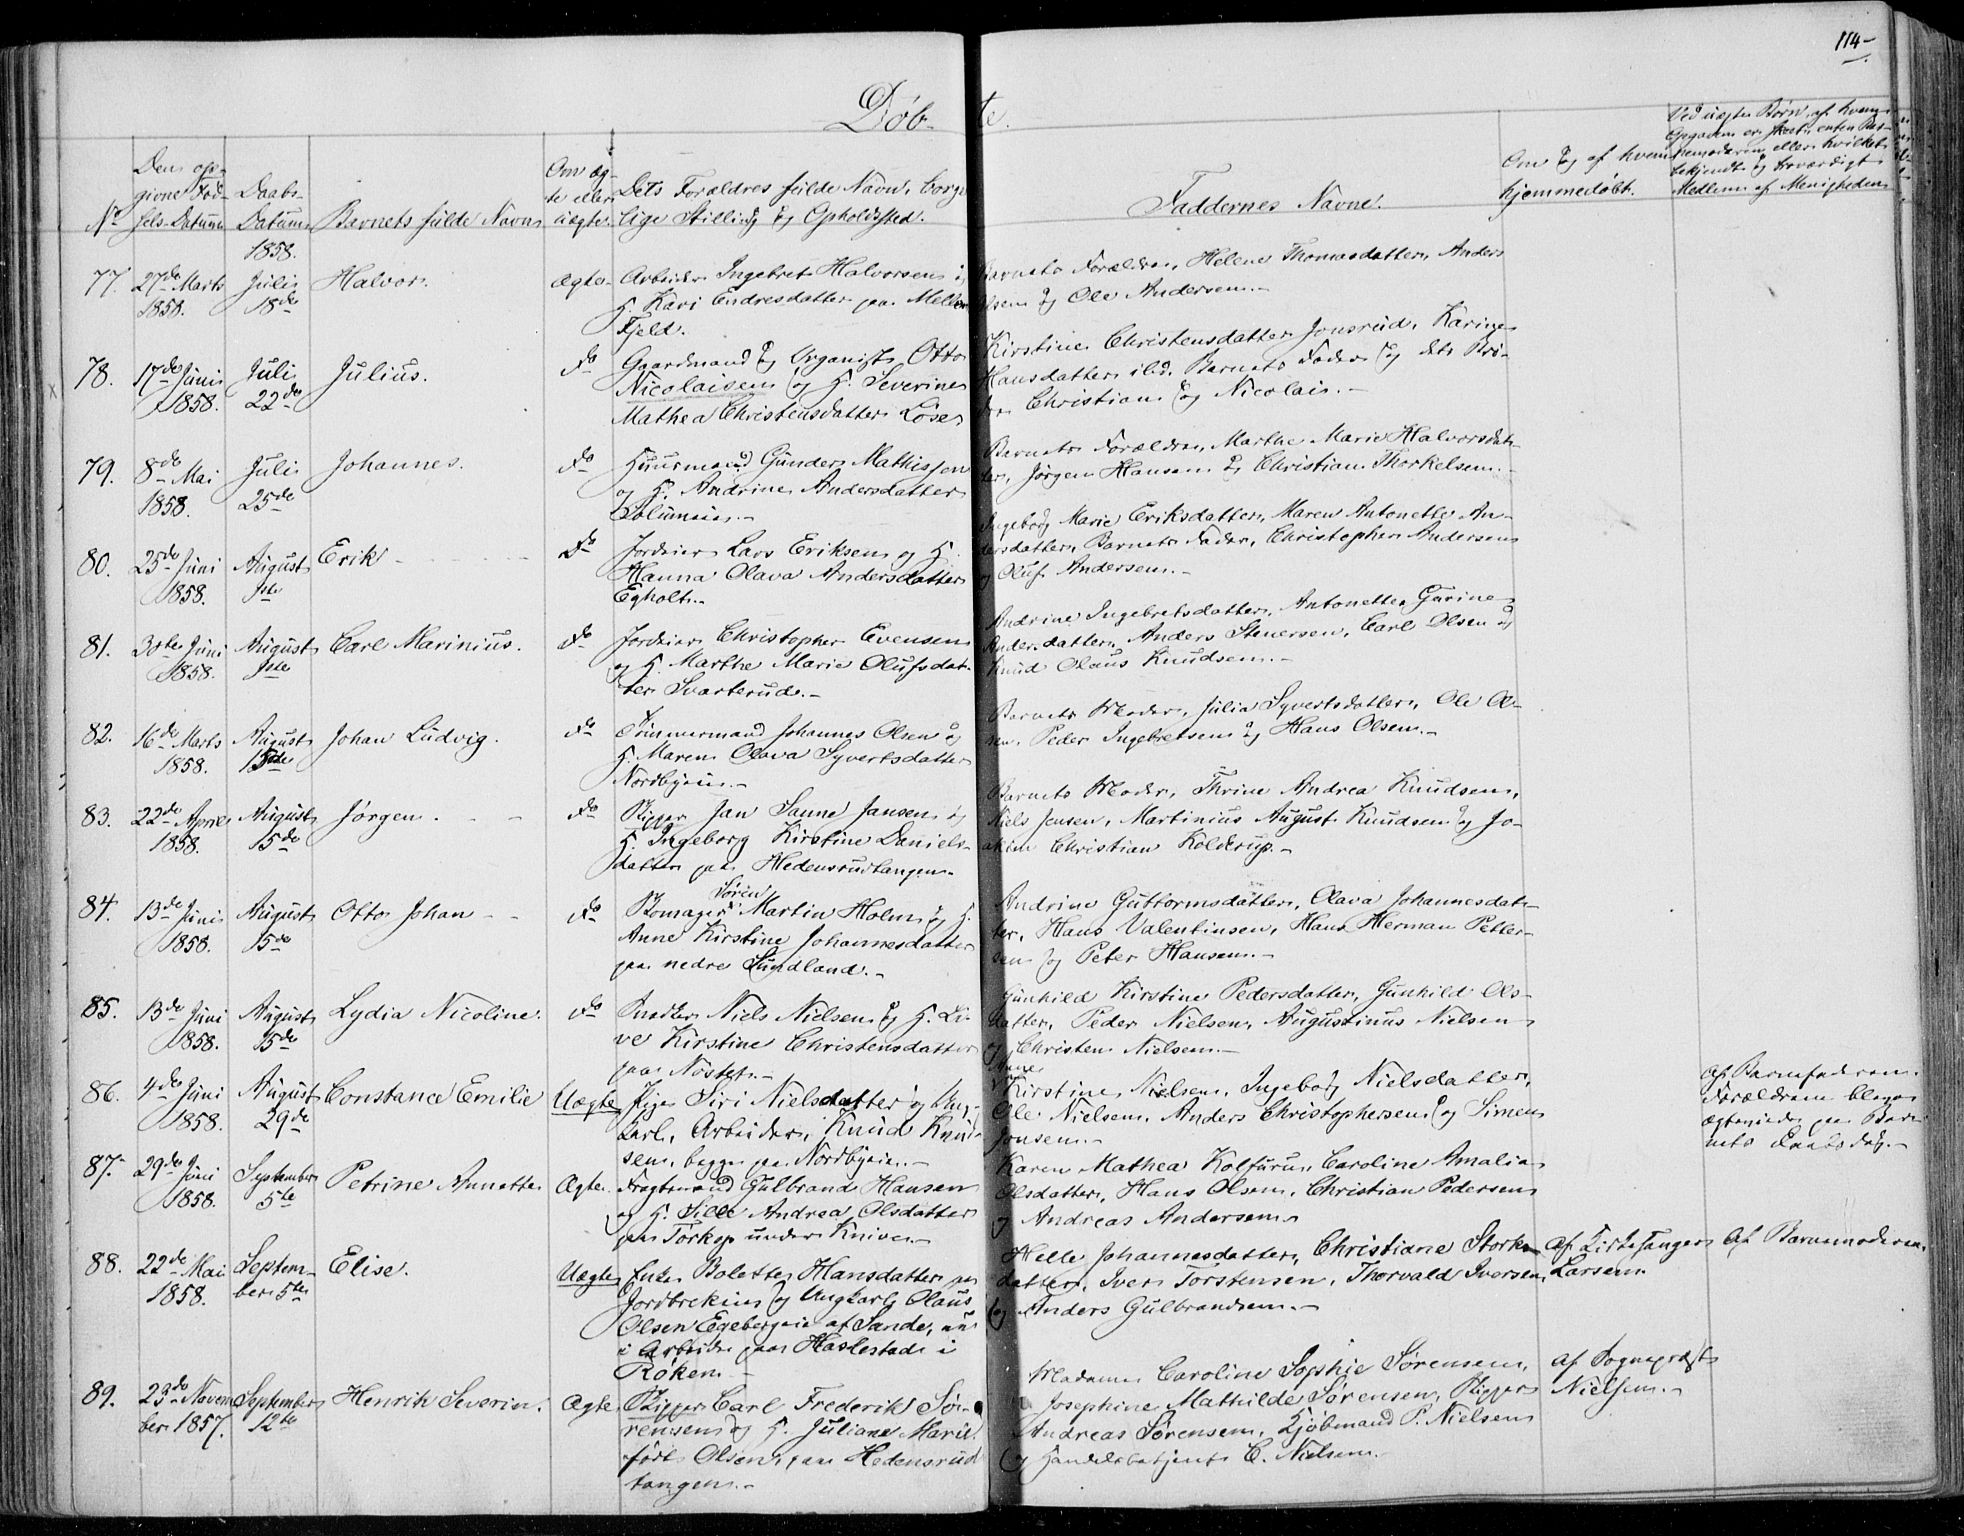 114-
Døbte.
No
Den op-
givne Fød-
sels-Datum
Daabs-
Datum
Barnets fulde Navn
Om æg-
te eller
uægte.
Dets Forældres fulde Navn, borger-
lige Stilling og Opholdssted.
Faddernes Navne.
Om og af hvem
hjemmedøbt.
Ved uægte Børn, af hvem
Opgaven er skeet, enten Bar-
nemoderen eller hvilket
bekjendt og troværdigt
Medlem af Menigheden
1858.
77. 27de Marts 1858. Juli 18de Halvor. Ægte.
Arbeider Ingebret Halvorsen og
H. Kari Endresdatter paa Mellem
Fjeld.
Barnets Forældre, Helene Thomasdatter, Anders
Olsen og Ole Andersen.-
78. 17de Juni 1858. Juli 22de Julius. do
Gaardmand og Organist Otto
Nicolaisen og H. Severine
Mathea Christensdatter Løse
Kirstine Christensdatter Jonsrud, Karine
Hansdatter ibd. Barnets Fader og dets Brø-
dre Christian og Nicolai.-
79. 8de Mai 1858. Juli 25de Johannes. do
Huusmand Gunder Mathissen
og H. Andrine Andersdatter
Solumeie.-
Barnets Forældre, Marthe Marie Halvorsdat-
ter, Jørgen Hansen og Christian Thorkelsen.-
80. 25de Juni 1858. August 1ste Erik do
Jordeier Lars Eriksen og H.
Hanna Olava Andersdatter
Egholt.-
Ingeborg Marie Eriksdatter, Maren Antonette An-
dersdatter, Barnets Fader, Christopher Andersen
og Oluf Andersen.-
81. 30te Juni 1858. August 1ste Carl Marinius. do
Jordeier Christopher Evensen
og H. Marthe Marie Olufsdat-
ter Svarterud.-
Andrine Ingebretsdatter, Antonette Gurine
Andersdatter, Anders Stenersen, Carl Olsen og
Knud Olaus Knudsen.-
82. 16de Marts 1858. August 15de Johan Ludvig. do
Tømmermand Johannes Olsen og
H. Maren Olava Syvertsdatter
Nordbyeie.-
Barnets Moder, Julia Syvertsdatter, Ole Ol-
sen, Peder Ingebretsen og Hans Olsen.-
83. 22de April 1858. August 15de Jørgen. do
Skipper Jan Sanne Jansen og
H. Ingeborg Kirstine Daniels-
datter paa Hedensrudtangen.
Barnets Moder, Thrine Andrea Knudsen,
Niels Jensen, Martinius August Knudsen og Jo-
akim Christian Kolderup.-
84. 13de Juni 1858. August 15de Otto Johan do
Skomager Søren Martin Holm og H.
Anne Kirstine Johannesdatter
paa nedre Sundland.-
Andrine Guttormsdatter, Olava Johannesdat-
ter, Hans Valentinsen, Hans Herman Petter-
sen og Peter Hansen.-
85. 13de Juni 1858. August 15de Lydia Nicoline. do
Snedker Niels Nielsen og H. Li-
ve Kirstine Christensdatter
paa Nøstet.-
Gunhild Kirstine Pedersdatter, Gunhild Ols-
datter, Peder Nielsen, Augustinus Nielsen
og Christen Nielsen.-
86. 4de Juni 1858. August 29de Constance Emilie Uægte
Pige Siri Nielsdatter og Ung-
karl, Arbeider, Knud Knud-
sen, begge paa Nordbyeie.-
Anne
Kirstine Nielsen, Ingeborg Nielsdatter,
Ole Nielsen, Anders Christophersen og Simen
Jonsen.-
Af Barnefaderen.
Forældrene bleve
ægteviede paa Bar-
nets Daabsdag.-
87. 29de Juni 1858. September 5te Petrine Annette Ægte.
Fragtmand Gulbrand Hansen
og H. Sille Andrea Olsdatter
paa Torkop under Kniven.-
Karen Mathea Kolfurus, Caroline Amalia
Olsdatter, Hans Olsen, Christian Pedersen
og Andreas Andersen.
88. 22de Mai 1858. Septem-ber 5te Elise. Uægte
Enke Bolette Hansdatter paa
Jordbrekeie og Ungkarl Olaus
Olsen Egebergeie af Sande, nu
i Arbeide paa Haslestad i
Røken.-
Helle Johannesdatter, Christiane Storkens-
datter, Iver Torstensen, Thorvald Iversen
og Anders Gulbrandsen.-
Af Kirkesanger
Larsen.
Af Barnemoderen.
89. 23de Novem-ber 1857. September 12te Henrik Severin. Ægte.
Skipper Carl Frederik Sø-
rensen og H. Juliane Marie
født Olsen, paa Hedensrud
tangen.-
Madame Caroline Sophie Sørensen,
Josephine Mathilde Sørensen, Skipper
Andreas Sørensen, Kjøbmand P. Nielsen
og Handelsbetjent C. Nielsen.-
Af Sognepræst
Nielsen.-